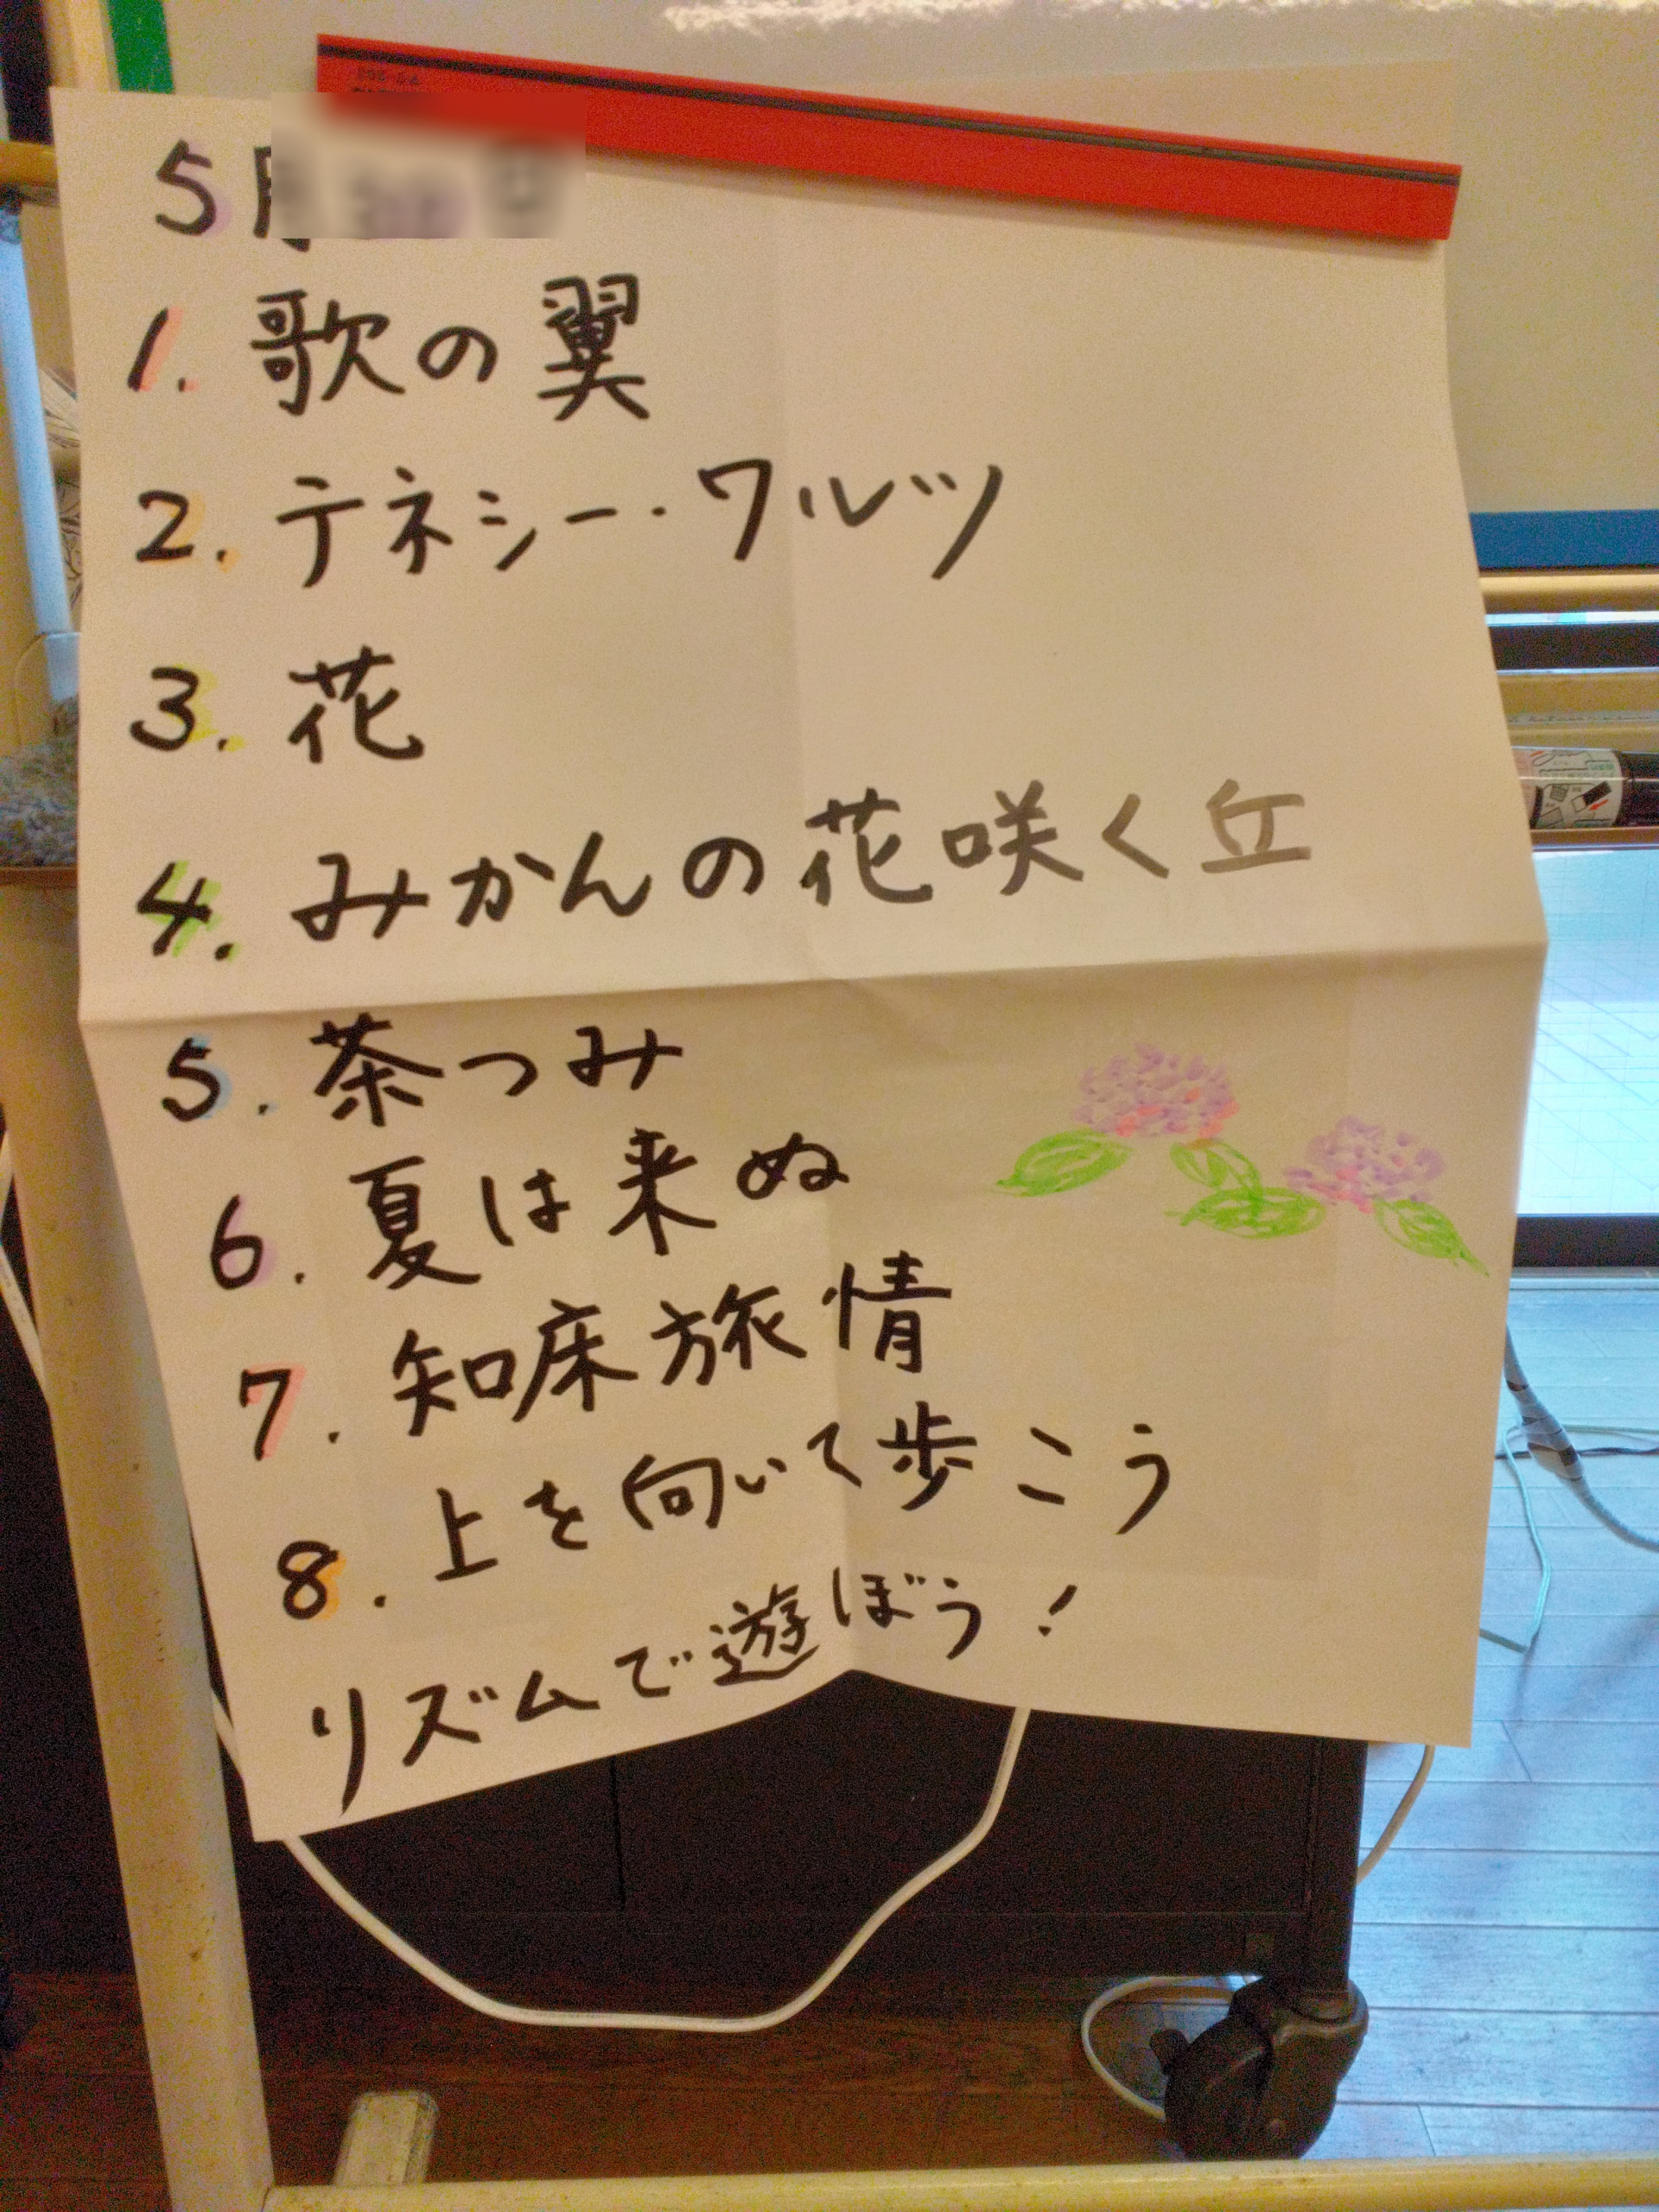 5月
1. 歌の翼
2. テネシー・ワルツ
3. 花
4. みかんの花咲く丘
5. 茶つみ
6. 夏は来ぬ
7. 知床旅情
8. 上を向いて歩こう
リズムで遊ぼう!